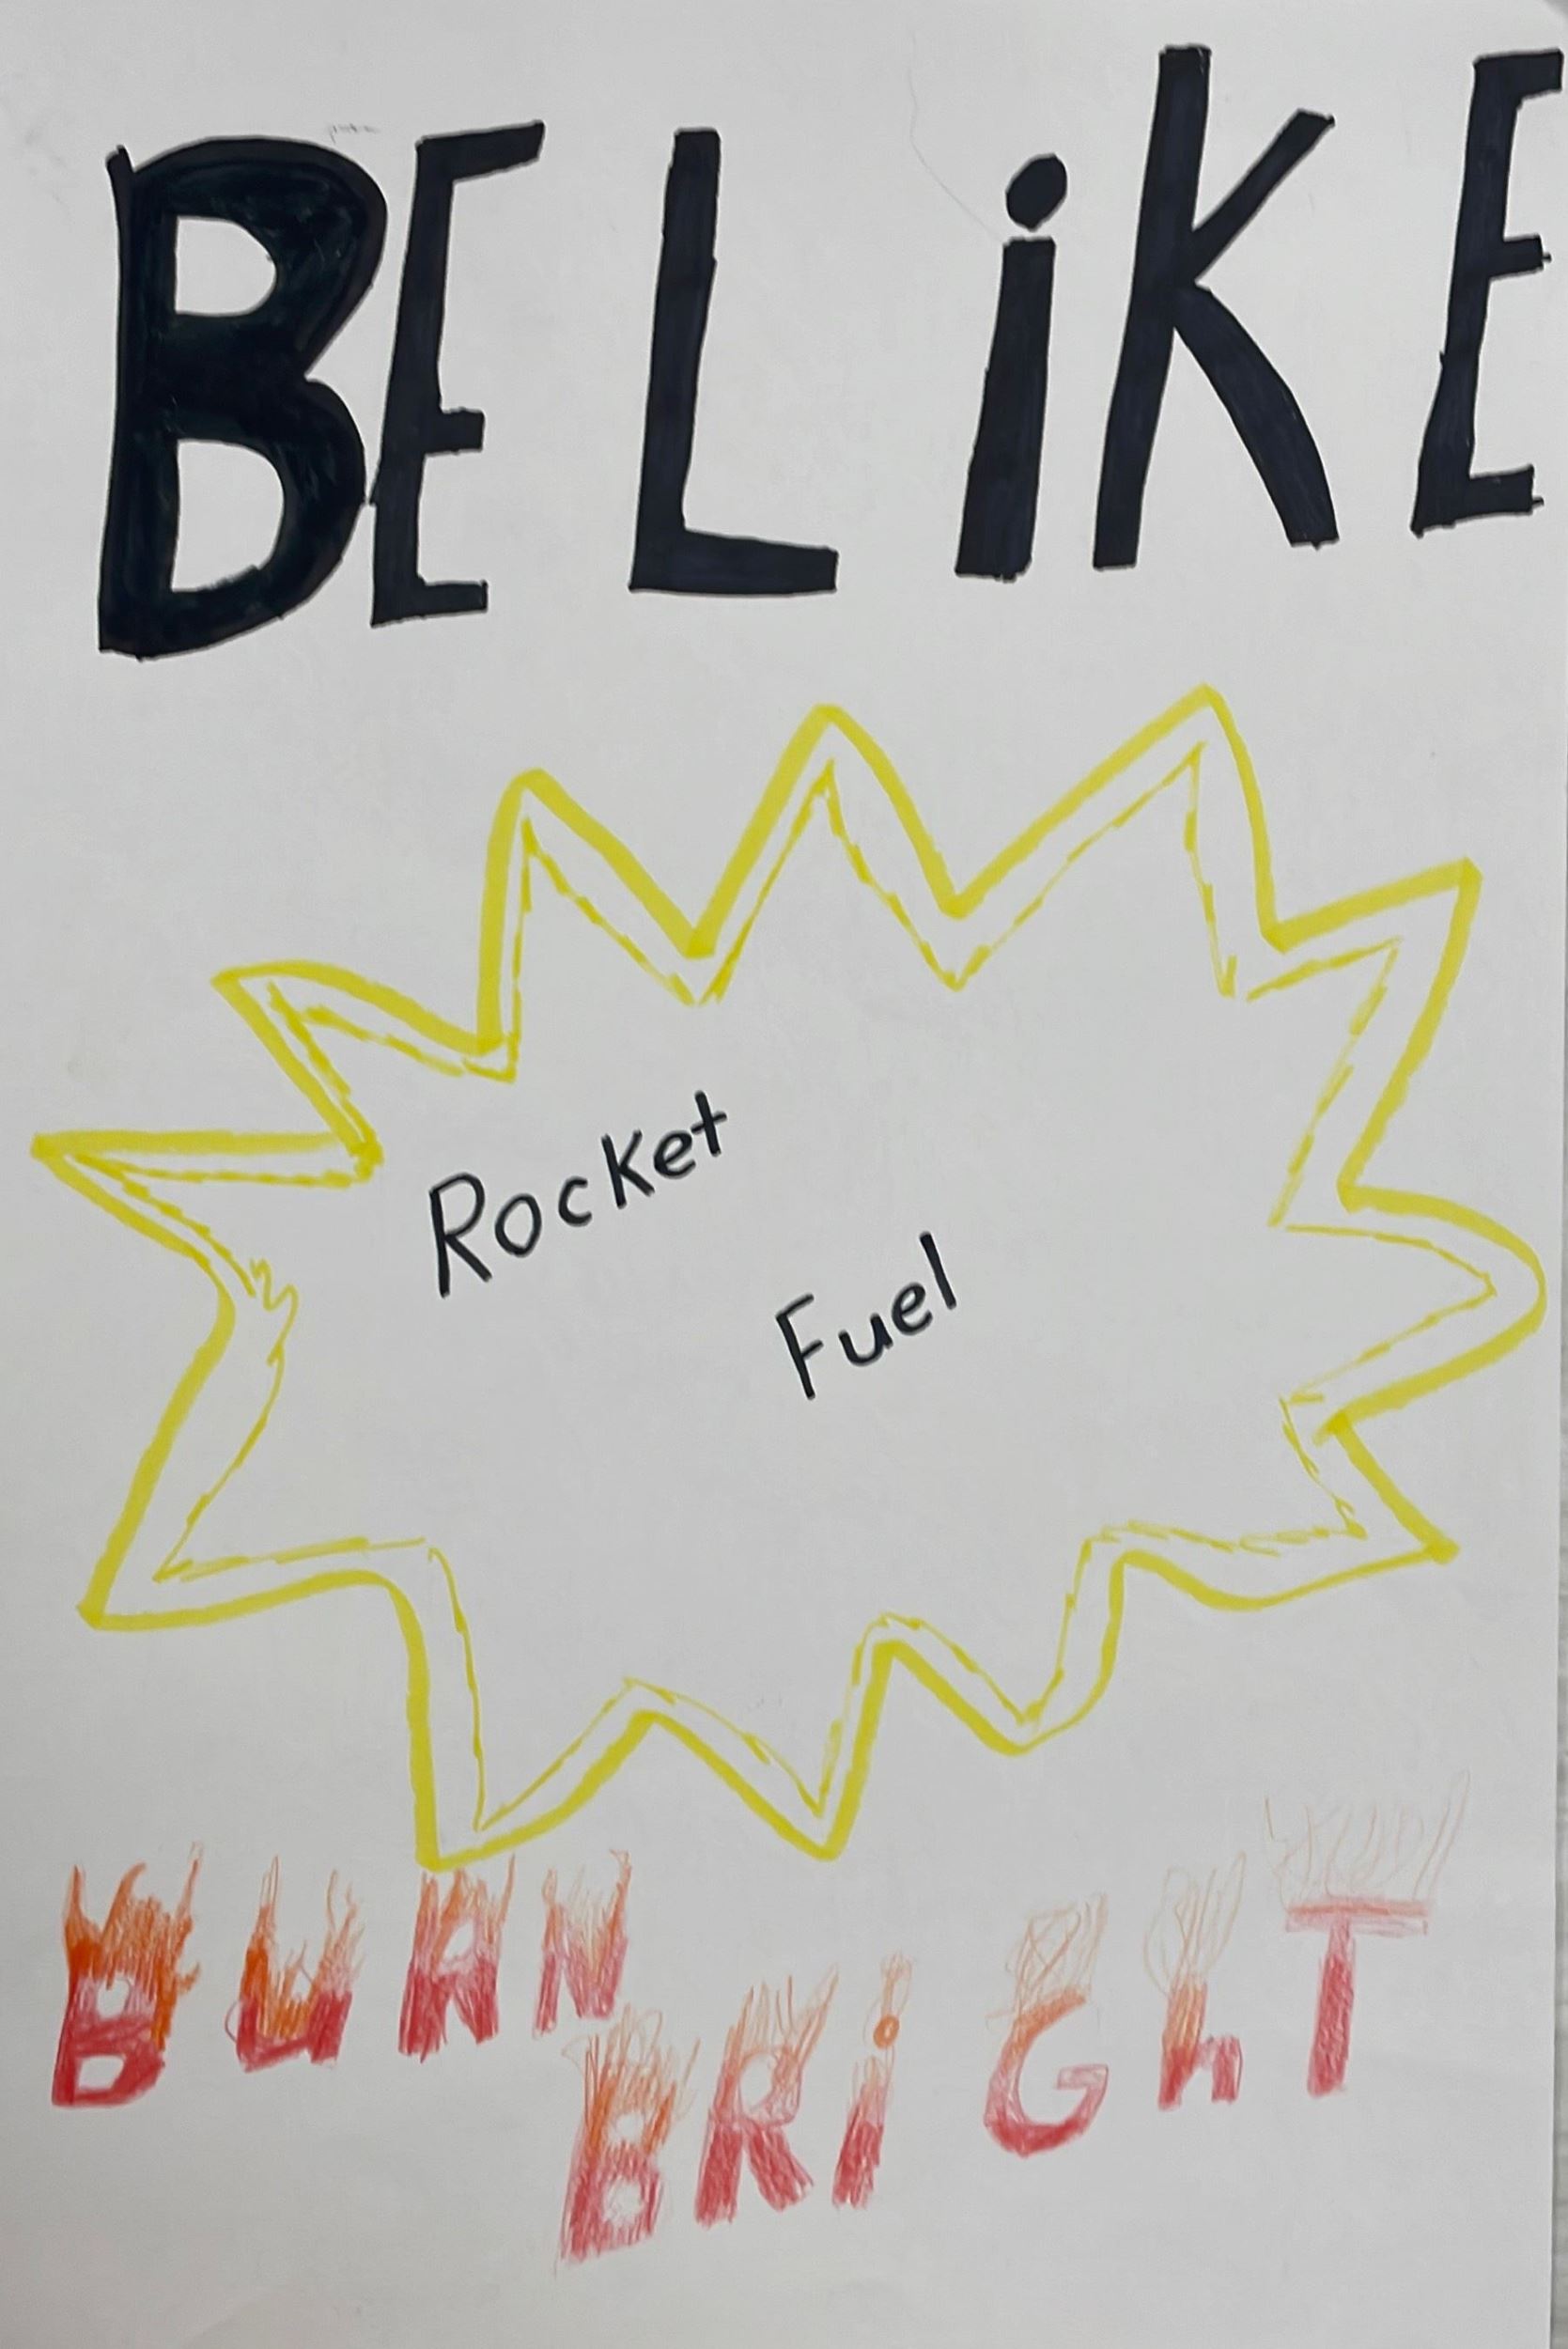 BE LiKE
Rocket
Fuel
BURN
BRiGhT